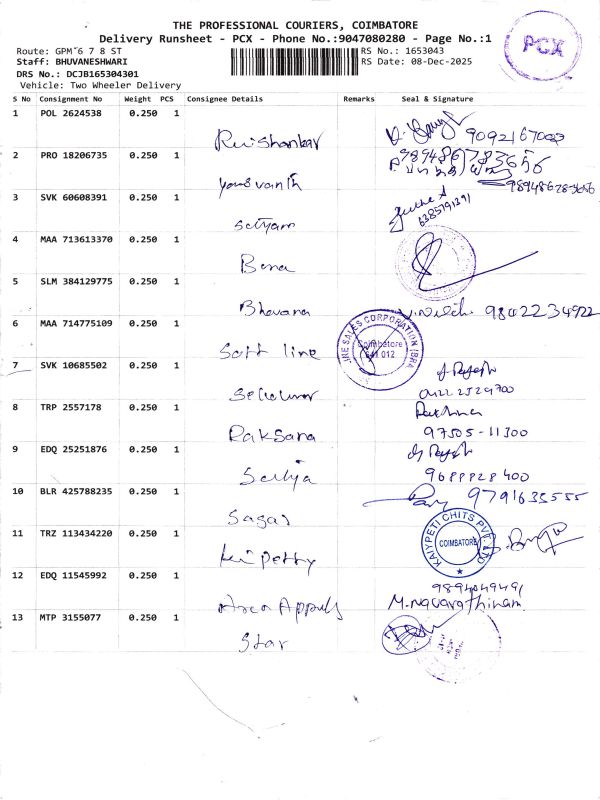 THE PROFESSIONAL COURIERS, COIMBATORE
Delivery Runsheet - PCX - Phone No.:9047080280 - Page No.:1
Route: GPM 6 7 8 ST
RS No.: 1653043
Staff: BHUVANESHWARI
RS Date: 08-Dec-2025
DRS No.: DCJB165304301
Vehicle: Two Wheeler Delivery
PCX
S No Consignment No Weight PCS Consignee Details Remarks Seal & Signature
1 POL 2624538 0.250 1
2 PRO 18206735 0.250 1
yousvanth
3 SVK 60608391 0.250 1
6385791391
Satyam
4 MAA 713613370 0.250 1
Bena
5 SLM 384129775 0.250 1
Bhavana 98422 34922
6 MAA 714775109 0.250 1
SRE SALES CORPORATION
Coimbatore
641 012
Soft line
7 SVK 10685502 0.250 1
0422 2529700
8 TRP 2557178 0.250 1
Raksana 97505-11300
9 EDQ 25251876 0.250 1
9688828400
10 BLR 425788235 0.250 1
9791635555
Sagar
11 TRZ 113434220 0.250 1
KAIYPETI CHITS PVT. LTD
COIMBATORE
12 EDQ 11545992 0.250 1
9894049491
M. Navarathinam
13 MTP 3155077 0.250 1
Star